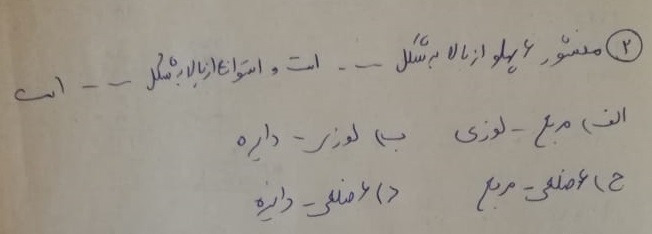 ۲) منشور ۶ پهلو از بالا به شکل --- است و استوانه از بالا به شکل --- است
الف) مربع - لوزی ب) لوزی - دایره
ج) ۶ ضلعی - مربع د) ۶ ضلعی - دایره